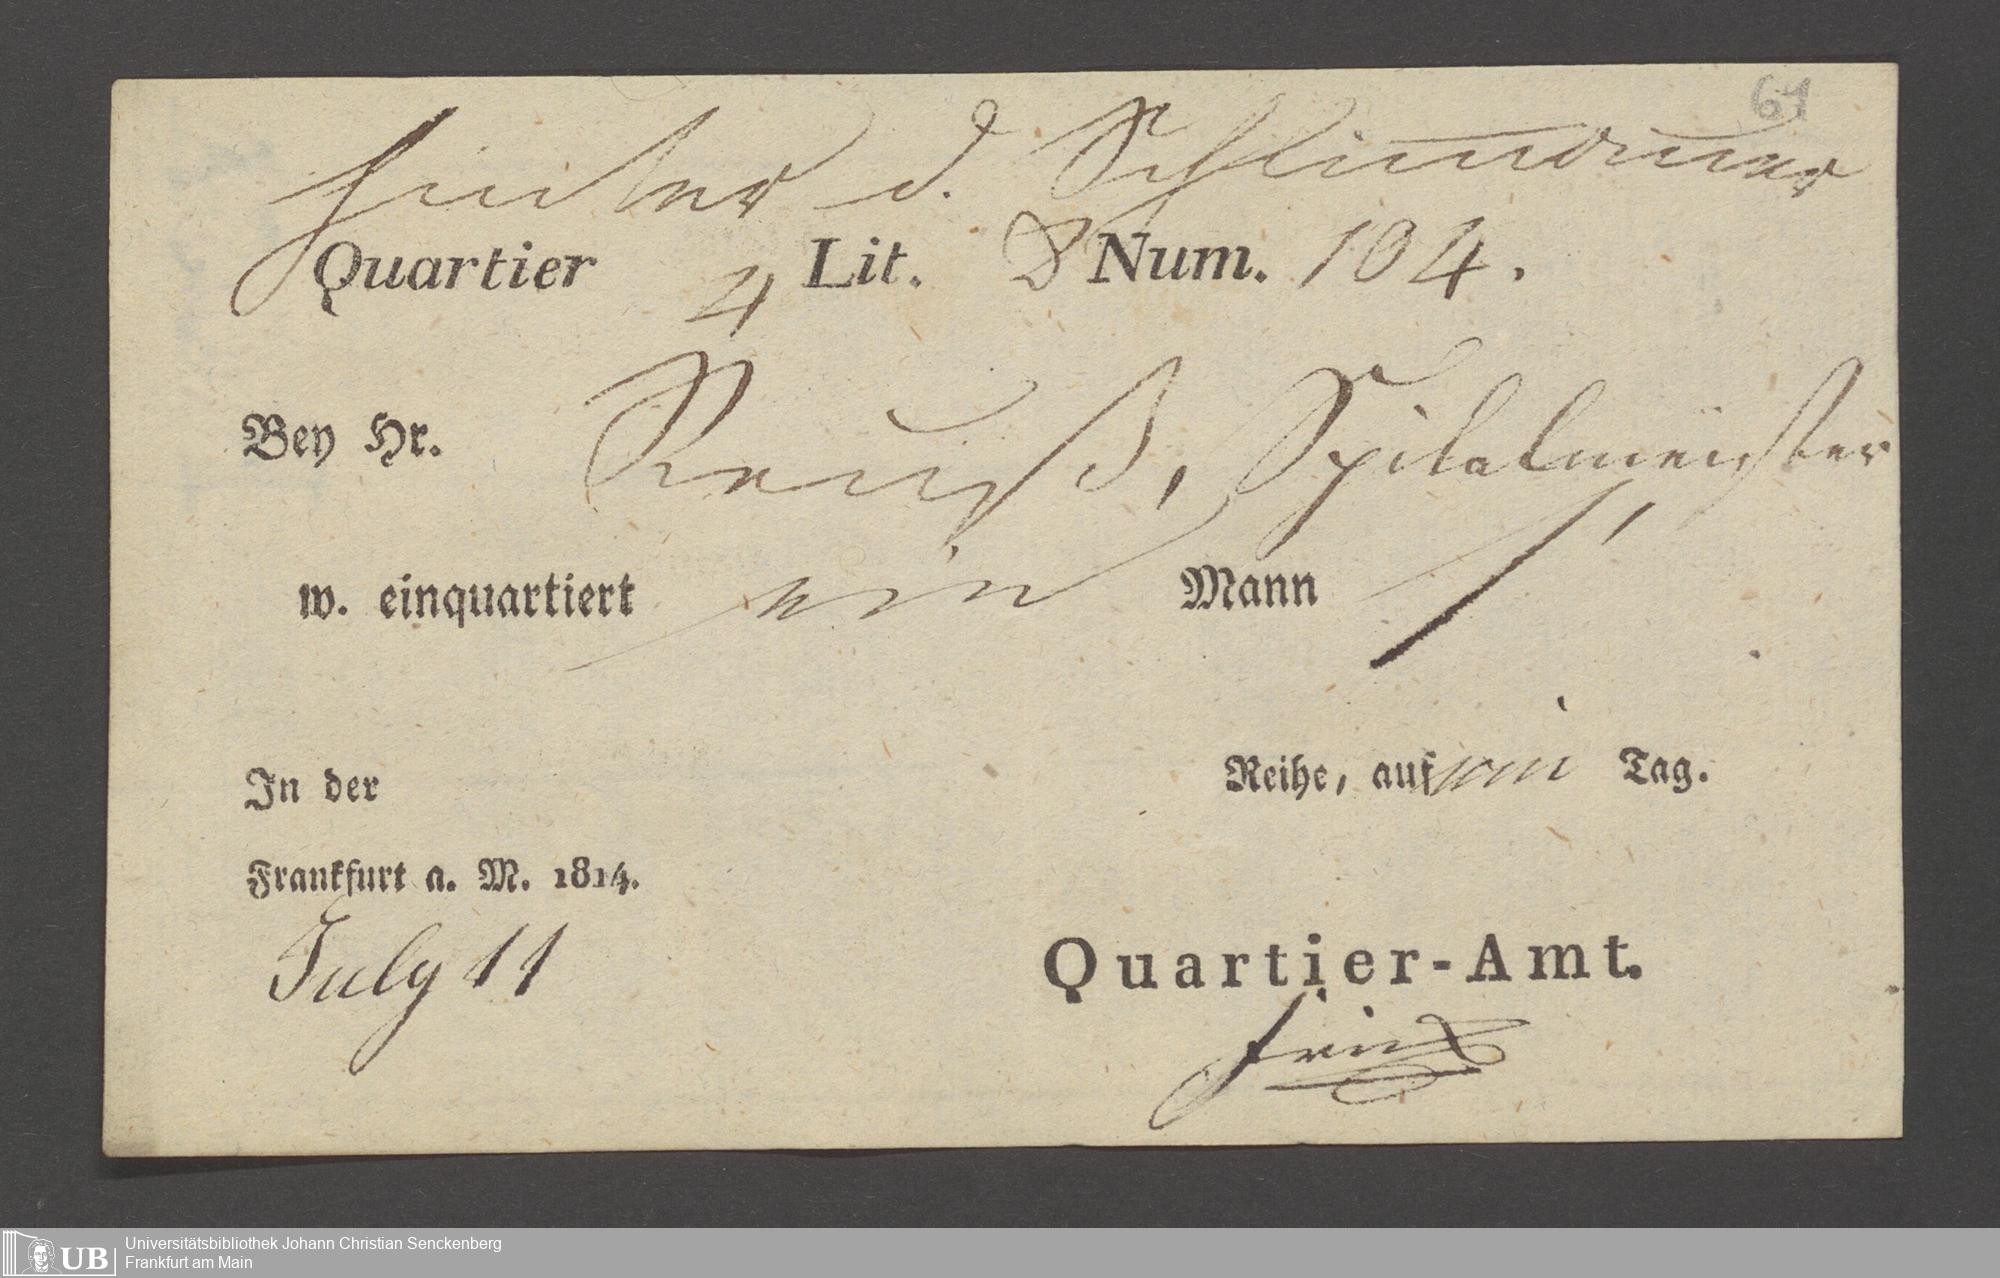 61
hinter d. Schlimmauer
Quartier 4 Lit. D Num. 104.
Bey Hr. Reuß, Spitalmeister
w. einquartiert ein Mann 1,
In der Reihe, auf ein Tag.
Frankfurt a. M. 1814.
July 11
Quartier-Amt.
UB Universitätsbibliothek Johann Christian Senckenberg
Frankfurt am Main